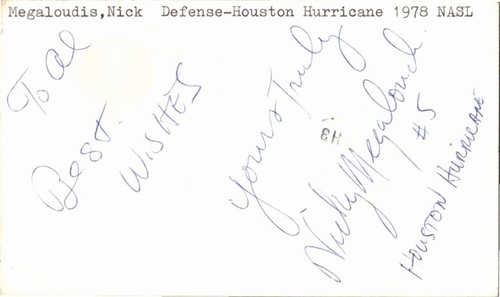 Megaloudis,Nick Defense-Houston Hurricane 1978 NASL
To Al
Best
WISHES
Yours Truly
Nicky Megaloudis
#5
HOUSTON HURRICANE